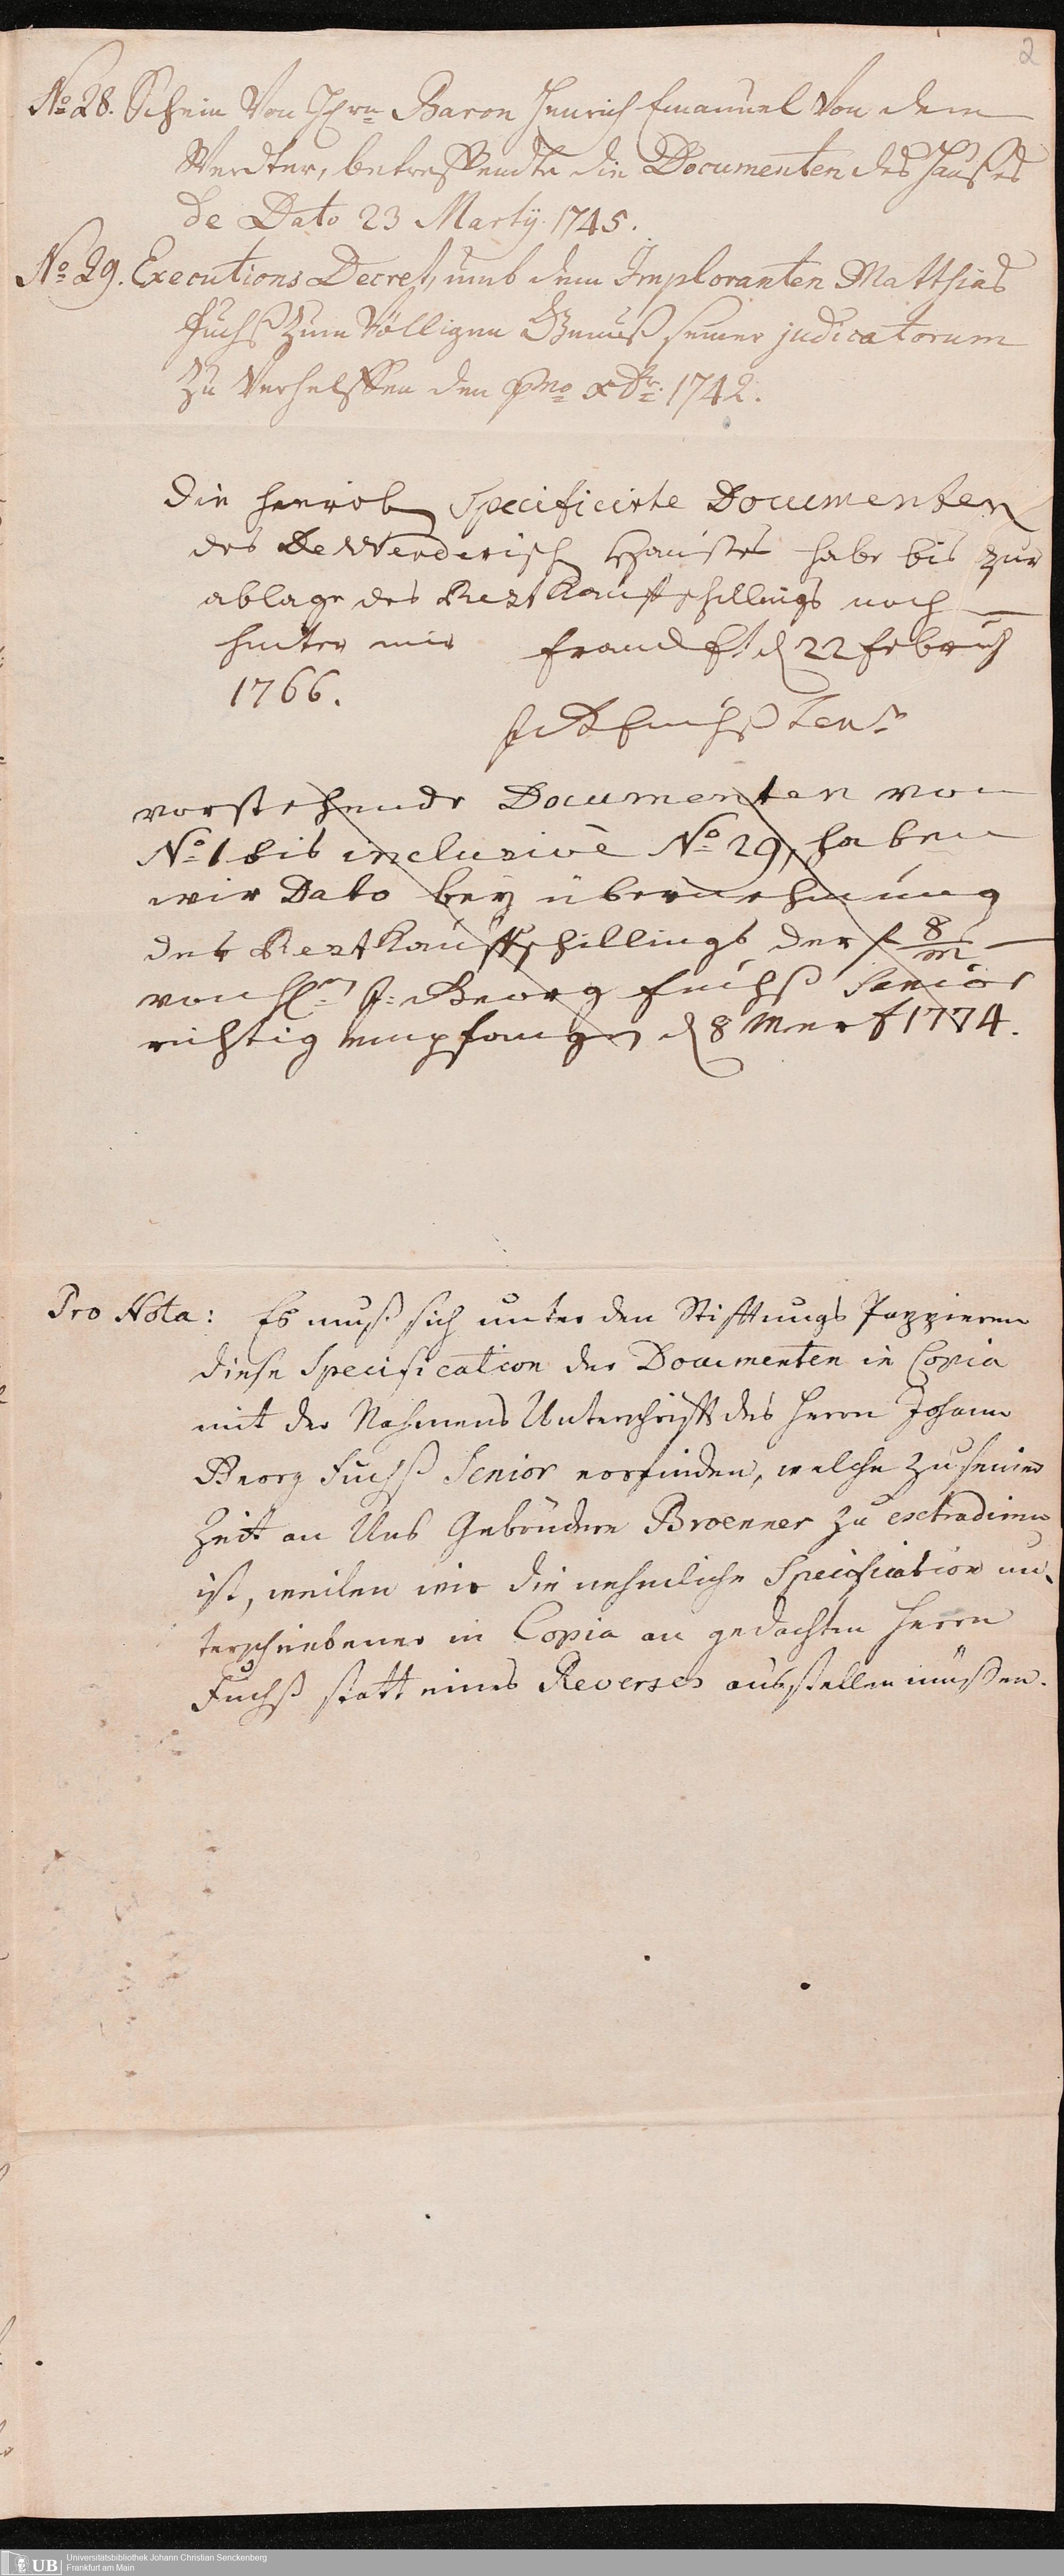 2
No 28. Schein Von Hrn Baron Henrich Emanuel Von dem
Werdter, betreffendte die Documenten des Haußes
de Dato 23 Martÿ 1745.
No 29. Executions Decret, umb dem Imploranten Matthias
Fuchß Zum Völligen Genuß seiner judicatorum
Zu Verhelffen den xbr: 1742.
Die hierob Specificirte Documenten
des De Werderisch Haußes habe bis zur
ablage des Restkauffschillings noch
hinter mir Franckft d 22 Febru
1766.
Fuchß Sen:
vorstehende Documenten von
No 1 bis inclusivè No 29, haben
wir Dato beÿ übernehmung
des Restkauffschillings der f 8/m
von H: J: Georg Fuchß Senior
richtig empfangen d 8 Mertz 1774.
Pro Nota: Es muß sich unter den Stifftungs Pappieren
diese Specification der Documenten in Copia
mit der Nahmens Unterschrifft des Herrn Johann
Georg Fuchß Senior vorfinden, welche zu seiner
Zeit an Uns Gebrüdere Broenner zu extradiren
ist, weilen wir die nehmliche Specification un-
terschriebener in Copia an gedachten Herrn
Fuchß statt eines Reverses ausstellen müßen.
UB Universitätsbibliothek Johann Christian Senckenberg
Frankfurt am Main